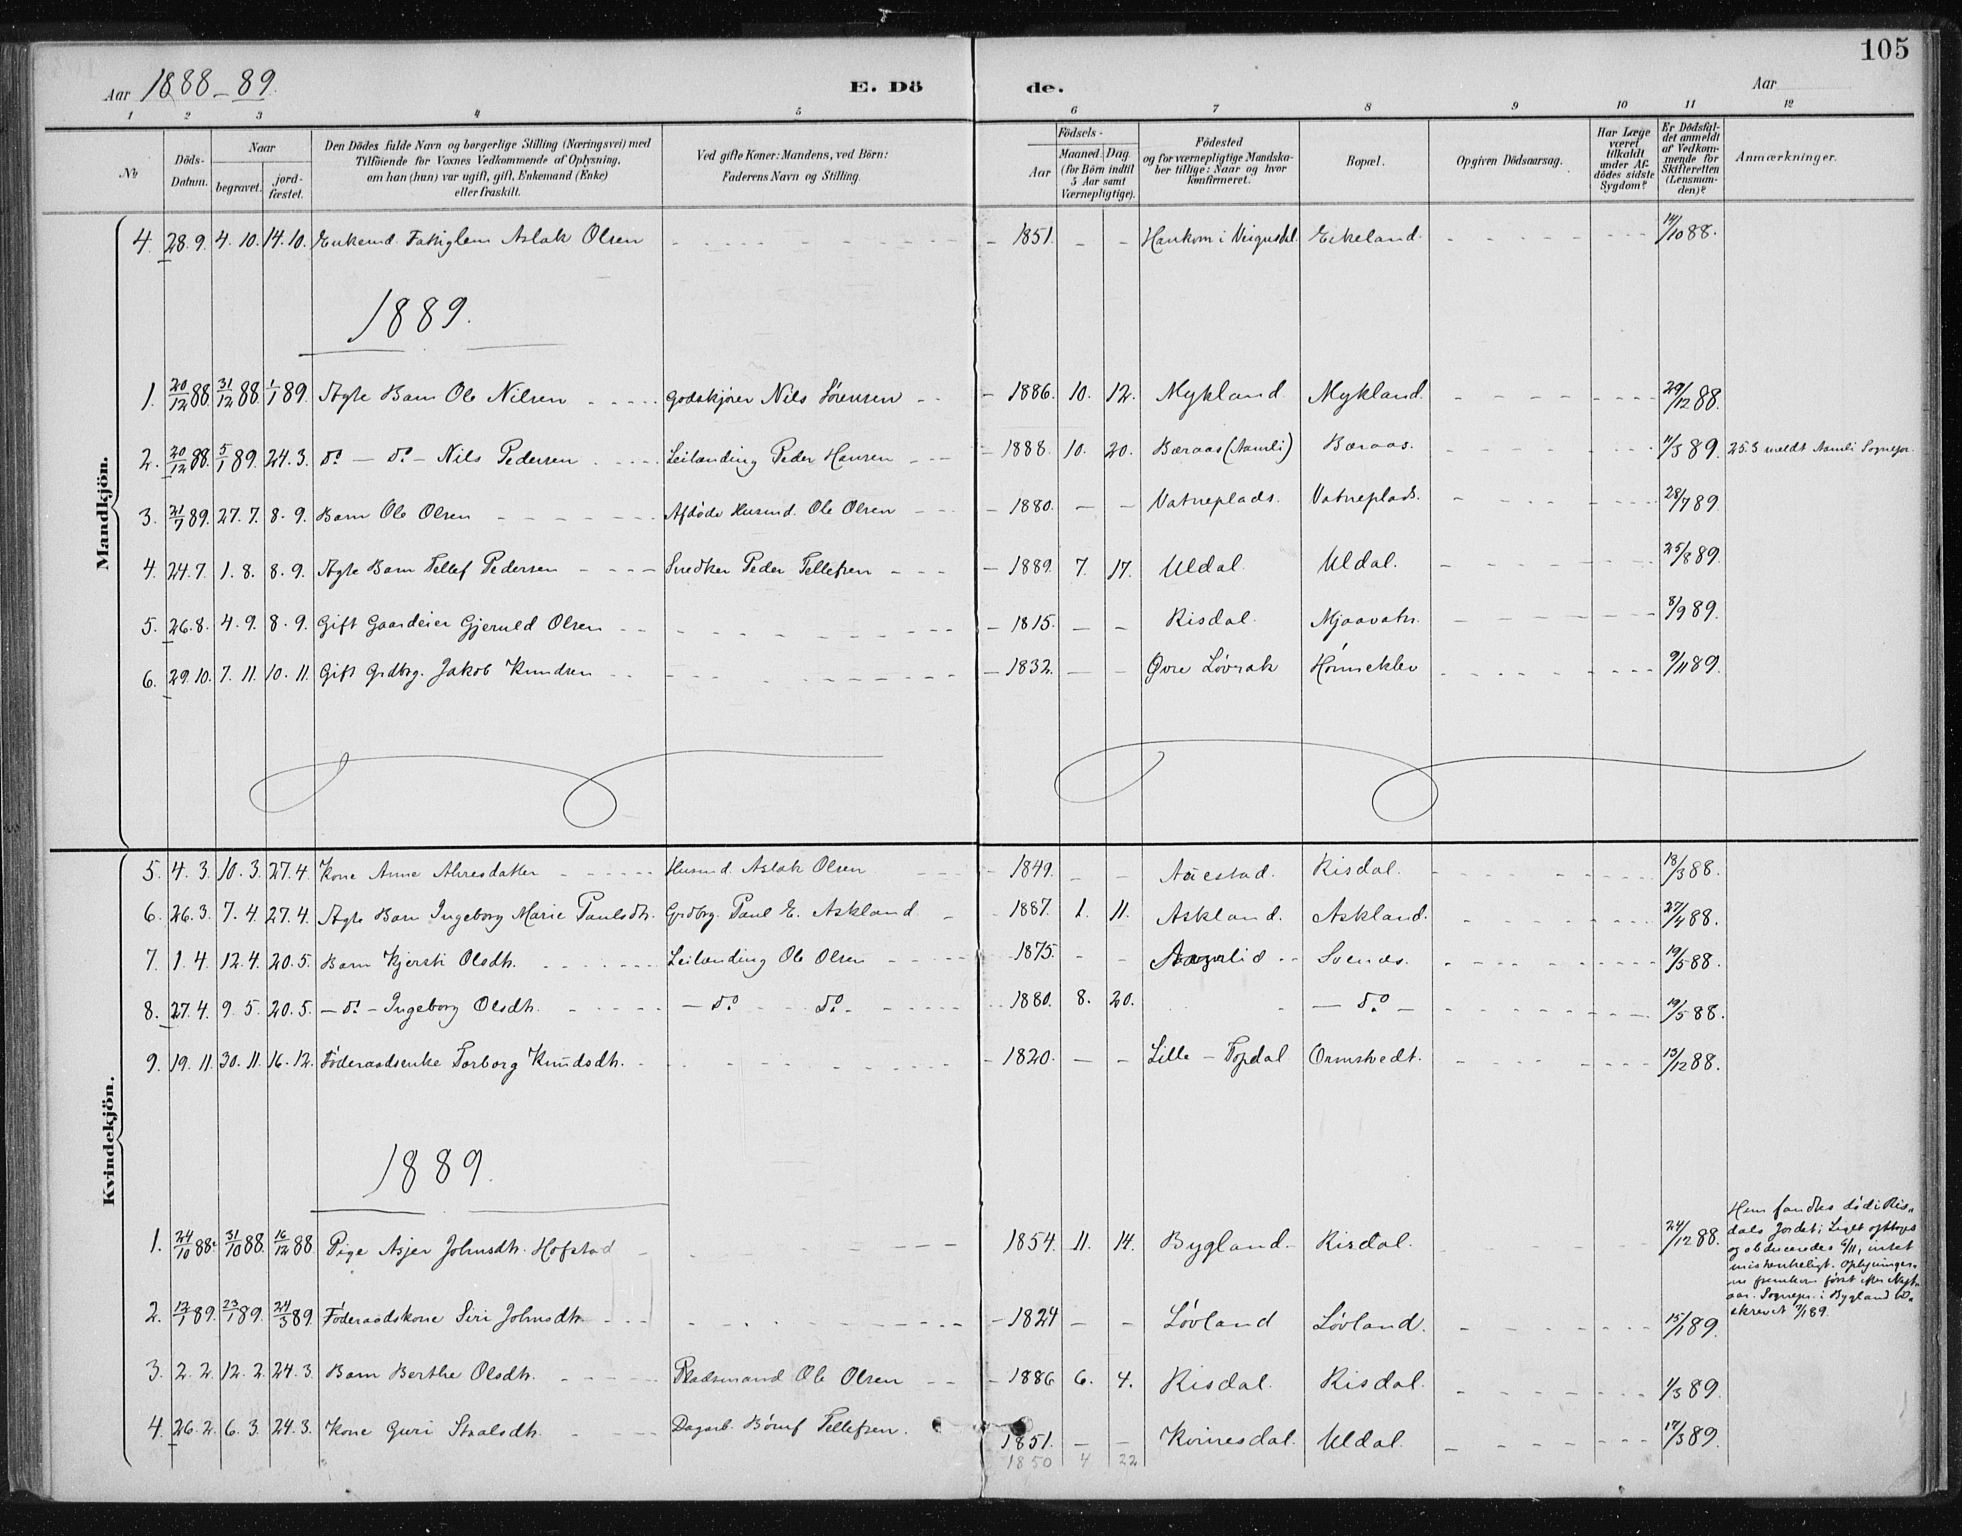 105
Aar 1888-89. E. Dö de. Aar
1 2 3 4 5 6 7 8 9 10 11 12
No Döds-Datum. Naar begravet. jord-fæstet. Den Dödes fulde Navn og borgerlige Stilling (Næringsvei) med Tilföiende for Voxnes Vedkommende af Oplysning, om han (hun) var ugift, gift, Enkemand (Enke) eller fraskilt. Ved gifte Koner: Mandens, ved Börn: Faderens Navn og Stilling. Födsels- Aar Maaned. Dag. (for Börn indtil 5 Aar samt Værnepligtige). Födested og for værnepligtige Mandskaber tillige: Naar og hvor konfirmeret. Bopæl. Opgiven Dödsaarsag. Har Læge været tilkaldt under Afdödes sidste Sygdom? Er Dödsfaldet anmeldt af Vedkommende for Skifteretten (Lensmanden)? Anmærkninger.
Mandkjön.
4. 28.9. 4.10. 14.10. Enkemd. Aslak Olsen 1851. - - Eikeland. 14/10 88.
1889.
1. 20/12 88. 31/12 88. 1/1 89. Ægte Barn Ole Nilsen Godskjører Nils Sörensen 1886. 10. 12. Mykland Mykland. 29/12 88.
2. 20/12 88. 5/1 89. 24.3. do - do - Nils Pedersen Leilænding Peder Hansen 1888. 10. 20. Bæraas (Aamli) Bæraas. 11/3 89. 25.3 meldt Aamli Sognepr.
3. 21/7 89. 27.7. 8.9. Barn Ole Olsen Afdöde Husmd. Ole Olsen 1880. - - Vatneplads. Vatneplads. 28/7 89
4. 24.7. 1.8. 8.9. Ægte Barn Tellef Pedersen Snedker Peder Tellefsen 1889. 7. 17. Uldal Uldal. 25/8 89.
5. 26.8. 4.9. 8.9. Gift Gaardeier Gjeruld Olsen 1815. - - Risdal. Mjaavatn. 8/9 89.
6. 29.10. 7.11. 10.11. Gift Grdbrg. Jakob Knudsen 1832. - - Øvre Lövrak 9/11 89.
Kvindekjön.
5. 4.3. 10.3. 27.4. Kone Anne Husmd. Aslak Olsen 1849. - - Risdal. 18/3 88.
6. 26.3. 7.4. 27.4. Ægte Barn Ingeborg Marie Paulsdtr. Grdbrg. Paul E. Askland 1887. 1. 11. Askland. Askland. 27/4 88.
7. 1.4. 12.4. 20.5. Barn Kjersti Olsdtr. Leilænding Ole Olsen 1875. - - Svenæs. 19/5 88.
8. 27.4. 9.5. 20.5. - do - Ingeborg Olsdtr. - do do - 1880. 8. 20. - do - 19/5 88.
9. 19.11. 30.11. 16.12. Föderaadsenke Torborg Knudsdtr. 1820. - - Lille-Topdal Ormstvedt. 13/12 88.
1889.
1. 24/10 88. 31/10 88. 16/12 88 Pige Asjer Johnsdtr. Hofstad 1854. 11. 14. Bygland Risdal. 24/12 88.
Hun fandtes död i Risdals Jordet; Liget optoges og obduceredes 6/11, intet mistænkeligt. Oplysningerne fremkom først efter Nyttaar. Sognepr. i Bygland 7/1 89.
2. 12/1 89. 23/1 89. 24/3 89 Föderaadskone Siri Johnsdtr 1824 - - Lövland Lövland. 15/1 89.
3. 2.2. 12.2. 24.3. Barn Berthe Olsdtr. Pladsmand Ole Olsen 1886 6. 4. Risdal. Risdal. 1/3 89.
4. 26.2. 6.3. 24.3. Kone Guri Staalsdtr. Dagarb. Tellefsen. 1851. - - Kvinesdal. Uldal. 17/3 89.
1850 4 22